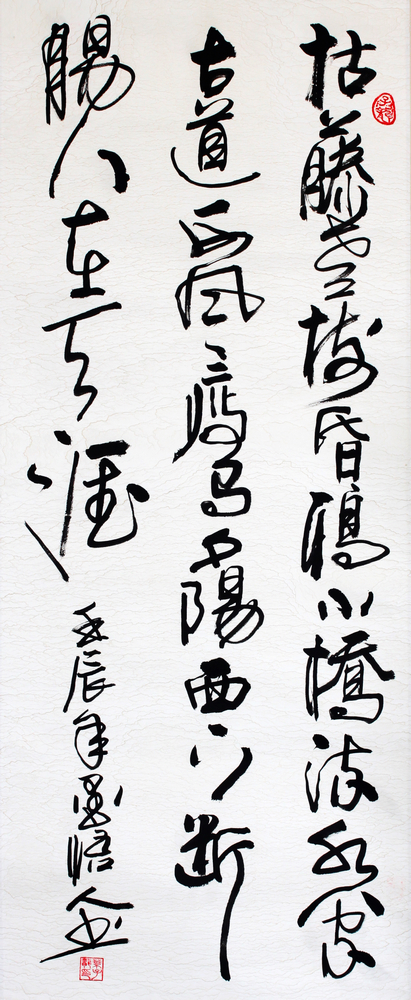 枯藤老樹昏鴉小橋流水人家
古道西風瘦馬夕陽西下斷
腸人在天涯
壬辰年